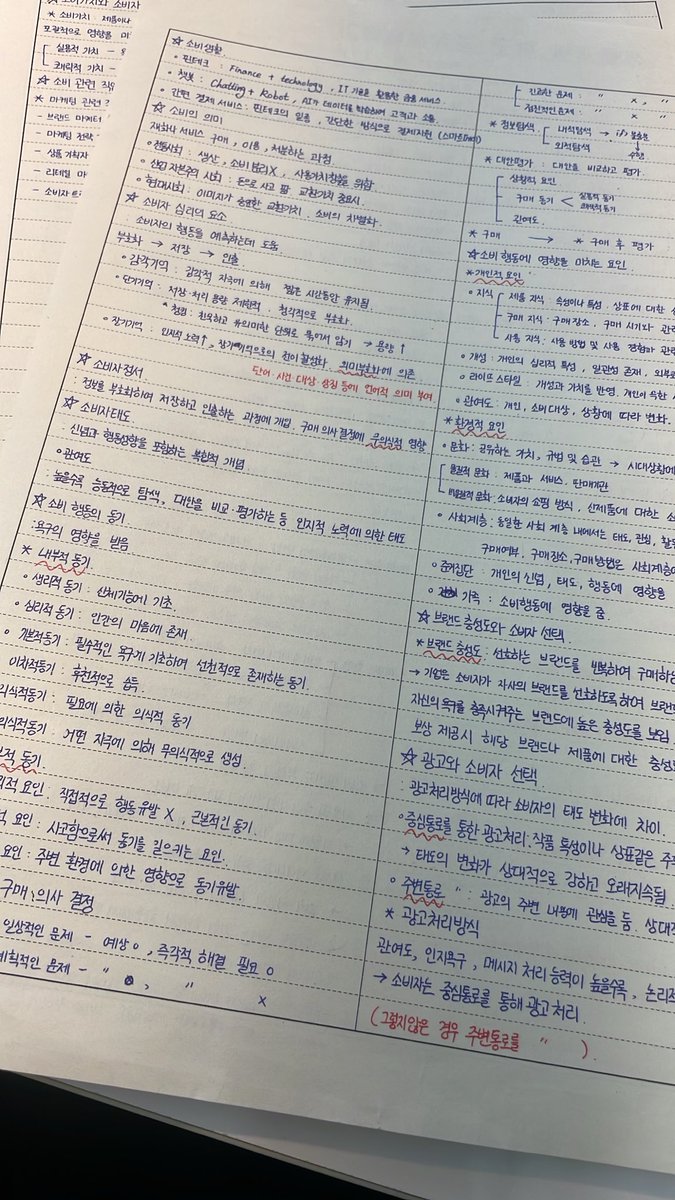 * 소비가치 : 제품이나
포괄적으로 영향을
실용적 가치 -
쾌락적 가치 -
☆ 소비 관련
* 마케팅 관련
- 브랜드 마케터
- 마케팅 전략
- 상품 기획자
- 리테일 마
- 소비자
☆ 소비생활
◦ 핀테크 : Finance + technology, IT 기술을 활용한 금융 서비스.
◦ 챗봇 : Chatting + Robot, AI가 데이터를 학습하여 고객과 소통.
◦ 간편 결제 서비스 : 핀테크의 일종, 간단한 방식으로 결제 지원
☆ 소비의 의미
재화나 서비스 구매, 이용, 처분하는 과정
◦ 전통사회 : 생산, 소비 분리 X, 사용가치 창출 위함
◦ 산업 자본주의 사회 : 돈으로 사고 팖. 교환가치 중요시.
◦ 현대사회 : 이미지가 교환가치. 소비의 차별화.
☆ 소비자 심리의 요소
소비자의 행동을 예측하는데 도움
부호화 → 저장 → 인출
◦ 감각기억 : 감각적 자극에 의해 짧은 시간동안 유지됨.
◦ 단기기억 : 저장·처리 용량 제한적. 청각적으로 부호화.
* 청킹 : 친숙하고 유의미한 단위로 묶어서 암기 → 용량↑
◦ 장기기억 : 인지적 노력↑, 장기기억으로의 전이 활성화. 의미부호화에 의존
단어·사건·대상·상징 등에 언어적 의미 부여.
☆ 소비자정서
정보를 부호화하여 저장하고 인출하는 과정에 개입. 구매 의사결정에 무의식적 영향
☆ 소비자태도
신념과 행동성향을 포함하는 복합적 개념
◦ 관여도
: 높을수록 능동적으로 탐색, 대안을 비교·평가하는 등 인지적 노력에 의한 태도
☆ 소비 행동의 동기
: 욕구의 영향을 받음
* 내부적 동기
◦ 생리적 동기 : 신체기능에 기초.
◦ 심리적 동기 : 인간의 마음에 존재
◦ 기본적동기 : 필수적인 욕구에 기초하여 선천적으로 존재하는 동기.
이차적동기 : 후천적으로 습득.
의식적동기 : 필요에 의한 의식적 동기
의식적동기 : 어떤 자극에 의해 무의식적으로 생성.
적 동기
적 요인 : 직접적으로 행동유발 X, 근본적인 동기.
적 요인 : 사고함으로써 동기를 일으키는 요인.
요인 : 주변 환경에 의한 영향으로 동기유발.
구매 의사 결정
일상적인 문제 - 예상 o, 즉각적 해결 필요 o
계획적인 문제 - 〃 o, 〃 x
긴급한 문제 : 〃 x, 〃
점진적인 문제 : 〃 x 〃
* 정보탐색
내적탐색 →
외적탐색
* 대안평가 : 대안을 비교하고 평가.
상황적 요인
구매 동기 < 실용적 동기
쾌락적 동기
관여도
* 구매 → * 구매 후 평가
☆ 소비 행동에 영향을 미치는 요인
* 개인적 요인
◦ 지식
제품 지식 : 속성이나 특성. 상표에 대한
구매 지식 : 구매 장소, 구매 시기와
사용 지식 : 사용 방법 및 사용 경험과
◦ 개성 : 개인의 심리적 특성, 일관성 존재,
◦ 라이프 스타일 : 개성과 가치를 반영. 개인이 속한
◦ 관여도 : 개인, 소비대상, 상황에 따라 변화.
* 환경적 요인
◦ 문화 : 공유하는 가치, 규범 및 습관 → 시대상황에
물질적 문화 : 제품과 서비스. 판매기관
비물질적 문화 : 소비자의 쇼핑 방식, 신제품에 대한
◦ 사회계층 : 동일한 사회 계층 내에서는 태도, 관심,
구매여부, 구매장소, 구매 방법은 사회계층에
◦ 준거집단 : 개인의 신념, 태도, 행동에 영향을
◦ 가족 : 소비행동에 영향을 줌.
☆ 브랜드 충성도와 소비자 선택
* 브랜드 충성도 : 선호하는 브랜드를 반복하여 구매하는
→ 기업은 소비자가 자사의 브랜드를 선호하도록 하여
자신의 욕구를 충족시켜주는 브랜드에 높은 충성도를 보임
보상 제공시 해당 브랜드나 제품에 대한
☆ 광고와 소비자 선택
: 광고처리방식에 따라 소비자의 태도 변화에 차이.
◦ 중심통로를 통한 광고처리 : 작품 특성이나 상표같은
→ 태도의 변화가 상대적으로 강하고 오래지속됨
◦ 주변통로 〃 : 광고의 주변 내용에 관심을 둠.
* 광고처리방식
관여도, 인지욕구, 메시지 처리 능력이 높을수록,
→ 소비자는 중심통로를 통해 광고 처리.
(그렇지않은 경우 주변통로를 〃 ).